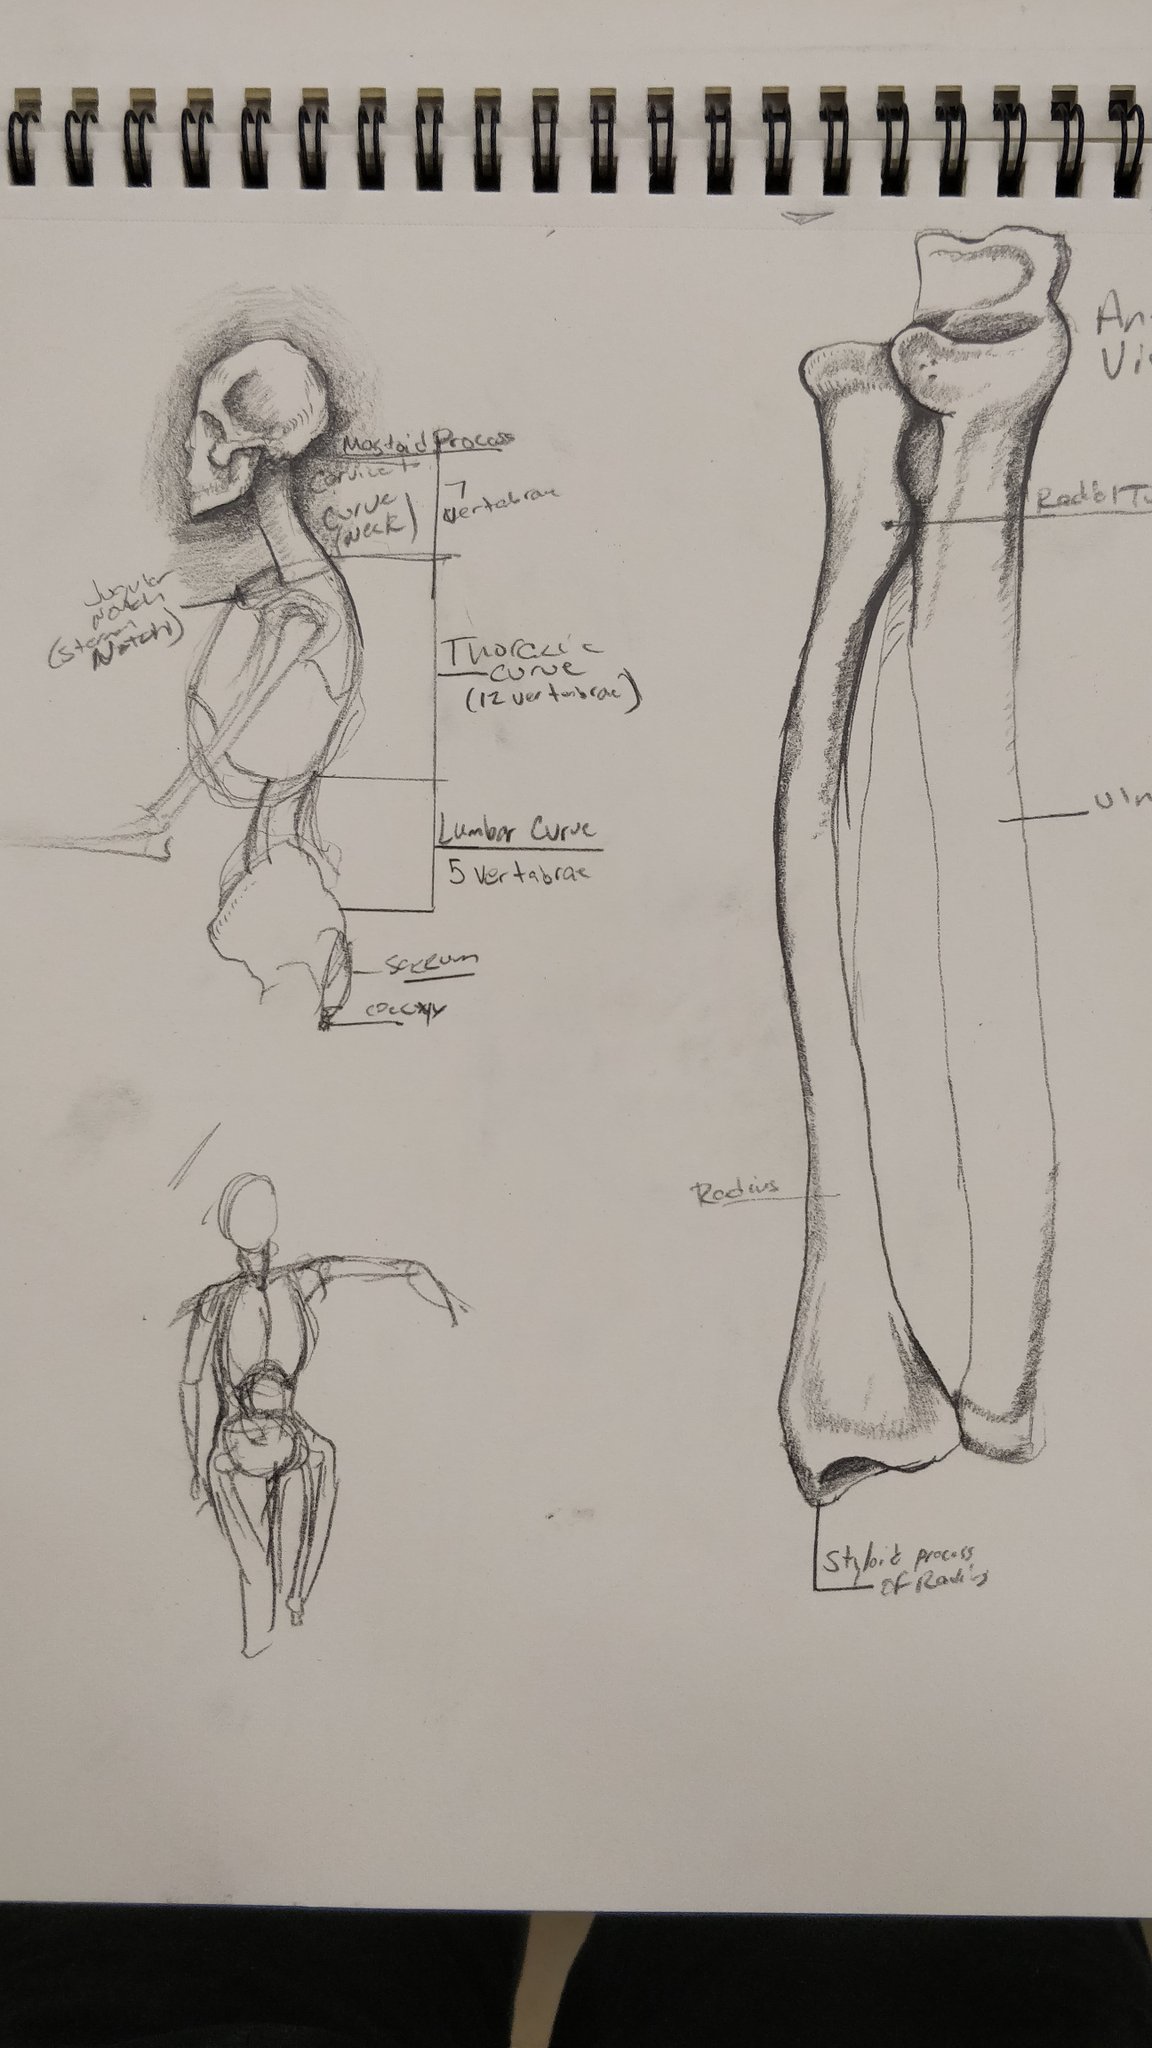 Mastoid Process
Curve
(Neck)
7
Vertabrae
Jugular
Notch
Notch)
Thoracic
Curve
(12 vertabrae)
Lumbar Curve
5 Vertabrae
Sacrum
coccxy
An
Vi
Radial Tu
Uln
Radius
Styloid process
of Radius